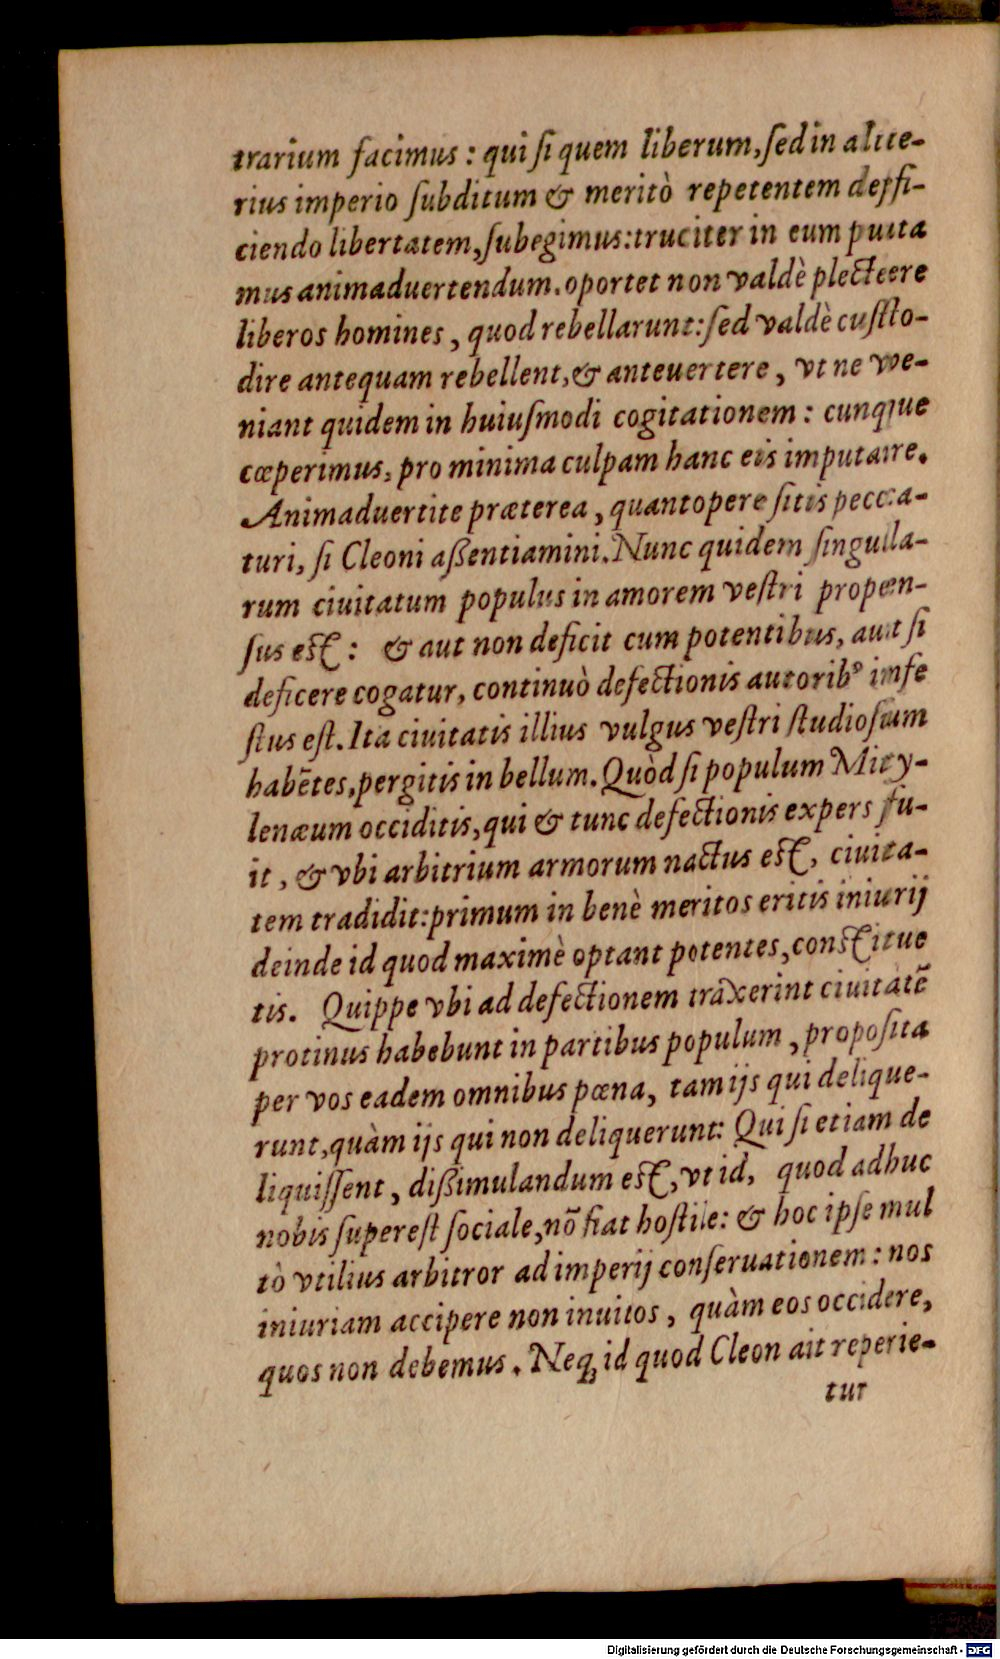 trarium facimus: qui ſi quem liberum, ſed in alte-
rius imperio ſubditum & meritò repetentem deffi-
ciendo libertatem, ſubegimus: truciter in eum puta
mus animaduertendum. oportet non valdè plectere
liberos homines, quod rebellarunt: ſed valdè cuſto-
dire antequam rebellent, & anteuertere, vt ne ve-
niant quidem in huiuſmodi cogitationem: cunque
cœperimus, pro minima culpam hanc eis imputare.
Animaduertite præterea, quantopere ſitis pecca-
turi, ſi Cleoni aßentiamini. Nunc quidem ſingula-
rum ciuitatum populus in amorem veſtri propen-
ſus eſt: & aut non deficit cum potentibus, aut ſi
deficere cogatur, continuò defectionis autoribꝰ infe
ſtus eſt. Ita ciuitatis illius vulgus veſtri ſtudioſum
habẽtes, pergitis in bellum. Quòd ſi populum Mity-
lenæum occiditis, qui & tunc defectionis expers fu-
it, & vbi arbitrium armorum nactus eſt, ciuita-
tem tradidit: primum in benè meritos eritis iniurij
deinde id quod maximè optant potentes, conſtitue
tis. Quippe vbi ad defectionem traxerint ciuitatẽ
protinus habebunt in partibus populum, propoſita
per vos eadem omnibus pœna, tam ijs qui delique-
runt, quàm ijs qui non deliquerunt: Qui ſi etiam de
liquiſſent, dißimulandum eſt, vt id, quod adhuc
nobis ſupereſt ſociale, nõ fiat hoſtile: & hoc ipſe mul
tò vtilius arbitror ad imperij conſeruationem: nos
iniuriam accipere non inuitos, quàm eos occidere,
quos non debemus. Neqꝫ id quod Cleon ait reperie-
tur
Digitalisierung gefördert durch die Deutsche Forschungsgemeinschaft - DFG